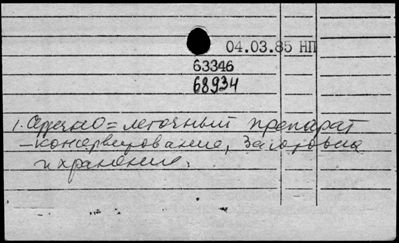 04.03.85 НП
63346
68934
1. Сердечно=легочный препарат
– консервирование, Заготовка
и хранение.